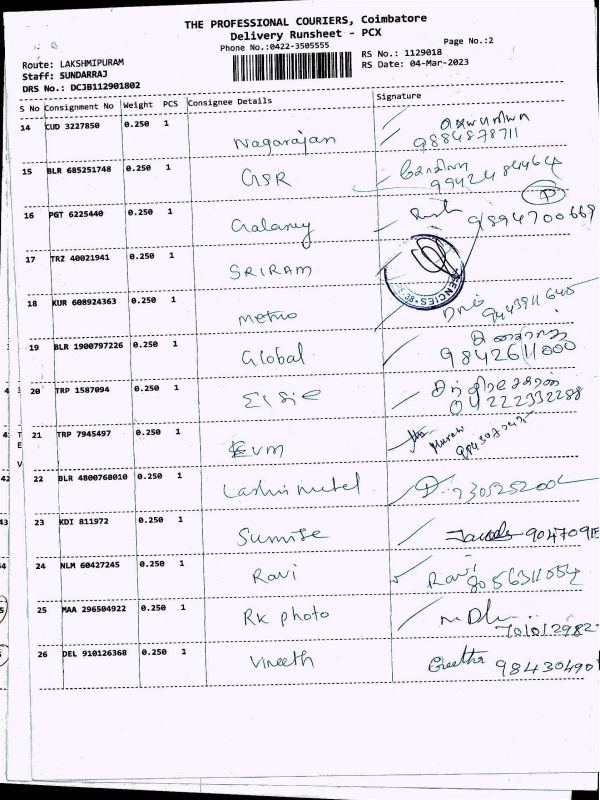 THE PROFESSIONAL COURIERS, Coimbatore
Delivery Runsheet - PCX
Phone No.:0422-3505555
Page No.:2
Route: LAKSHMIPURAM
RS No.: 1129018
Staff: SUNDARRAJ
RS Date: 04-Mar-2023
DRS No.: DCJB112901802
S No Consignment No Weight PCS Consignee Details Signature
14 CUD 3227850 0.250 1 Nagarajan
9884878711
15 BLR 685251748 0.250 1 GSR
9942484464
16 PGT 6225440 0.250 1 Galaxey 9894700669
17 TRZ 40021941 0.250 1 SRIRAM
AGENCIES
18 KUR 608924363 0.250 1 metro
9443911645
19 BLR 1900797226 0.250 1 Global
9842611000
20 TRP 1587094 0.250 1 Elsie
04222332288
21 TRP 7945497 0.250 1 EVM
22 BLR 4800768010 0.250 1 Lashmi metel
23 KDI 811972 0.250 1 Sunrise
24 NLM 60427245 0.250 1 Ravi Ravi
8056311054
25 MAA 296504922 0.250 1 RK photo
26 DEL 910126368 0.250 1 Vineeth Geetha 98430490